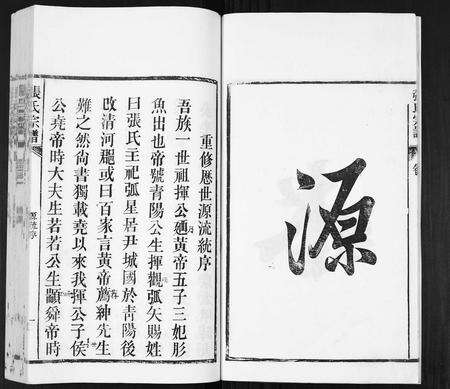 源
重修歷世源流統序
吾族一世祖揮公廼黃帝五子三妃彤
魚出也帝號青陽公生揮觀弧矢賜姓
曰張氏主祀弧星居尹城國於青陽後
改清河郡或曰百家言黃帝薦紳先生
難之然尚書獨載堯以來我揮公子侯
公堯帝時大夫生若若公生顓舜帝時
張氏宗譜
源流序
一